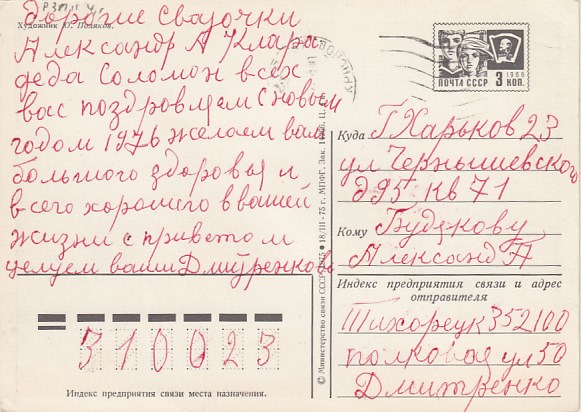 Художник Ю. Поляков.
Дорогие Сваточки
Александр А Клара
деда Соломон всех
вас поздровляем С новым
годом 1976 желаем вам
большого здоровья и
всего хорошего в вашей
жизни с приветом и
целуем ваши Дмитренково
310023
Индекс предприятия связи места назначения.
© Министерство связи СССР, 1975 • 18/III - 75 г. МПФГ. Зак.
ПОЧТА СССР 3 КОП.
1966
Куда Г Харьков 23
ул Чернышевского
д 95 кв 71
Кому Будякову
Александ А
Индекс предприятия связи и адрес
отправителя
Тихорецк 352100
полковая ул 50
Дмитренко